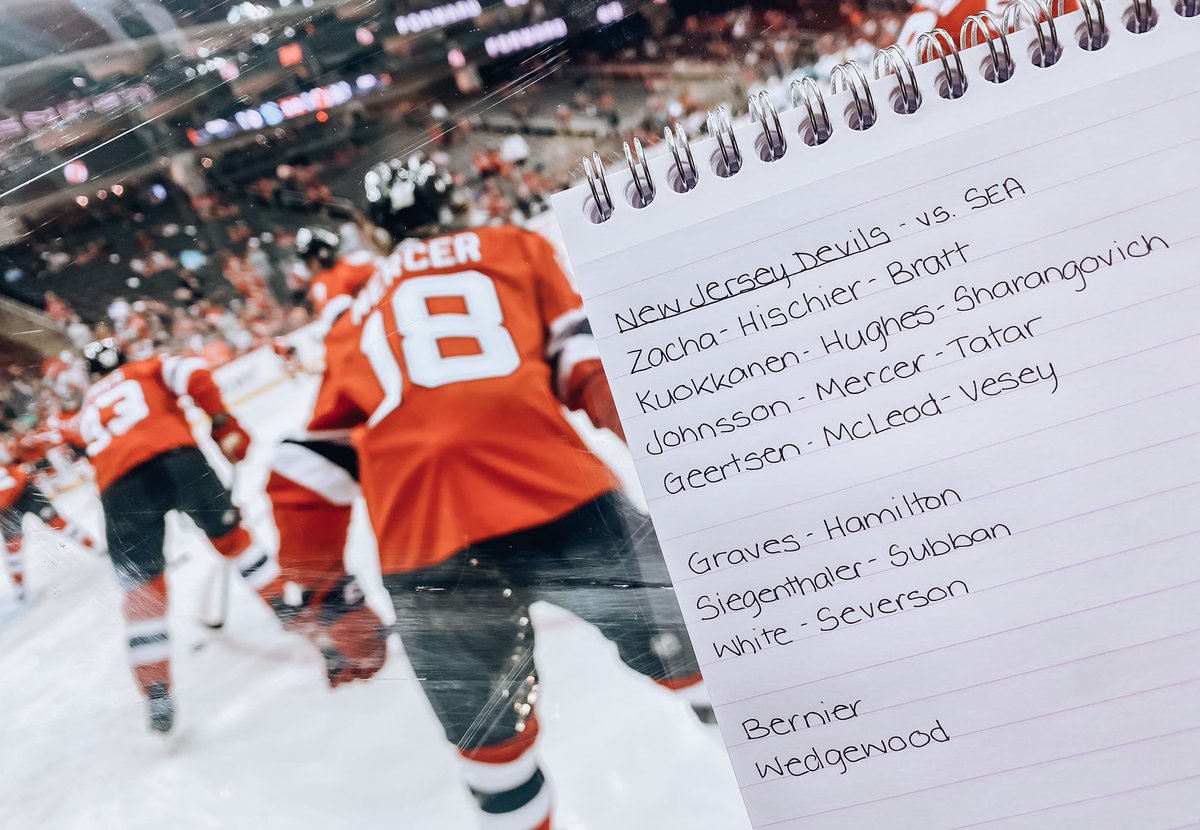 FORWARD
FORWARD
MERCER
18
33
New Jersey Devils - vs. SEA
Zacha - Hischier - Bratt
Kuokkanen - Hughes - Sharangovich
Johnsson - Mercer - Tatar
Geertsen - McLeod - Vesey
Graves - Hamilton
Siegenthaler - Subban
White - Severson
Bernier
Wedgewood